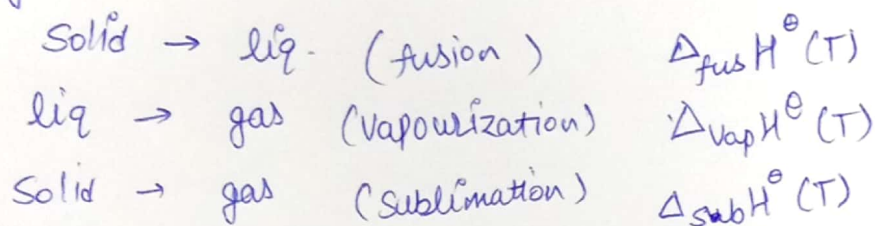 Solid → liq. (fusion) Δfus H⊖ (T)
liq → gas (Vapourization) ΔVap H⊖ (T)
Solid → gas (Sublimation) Δsub H⊖ (T)